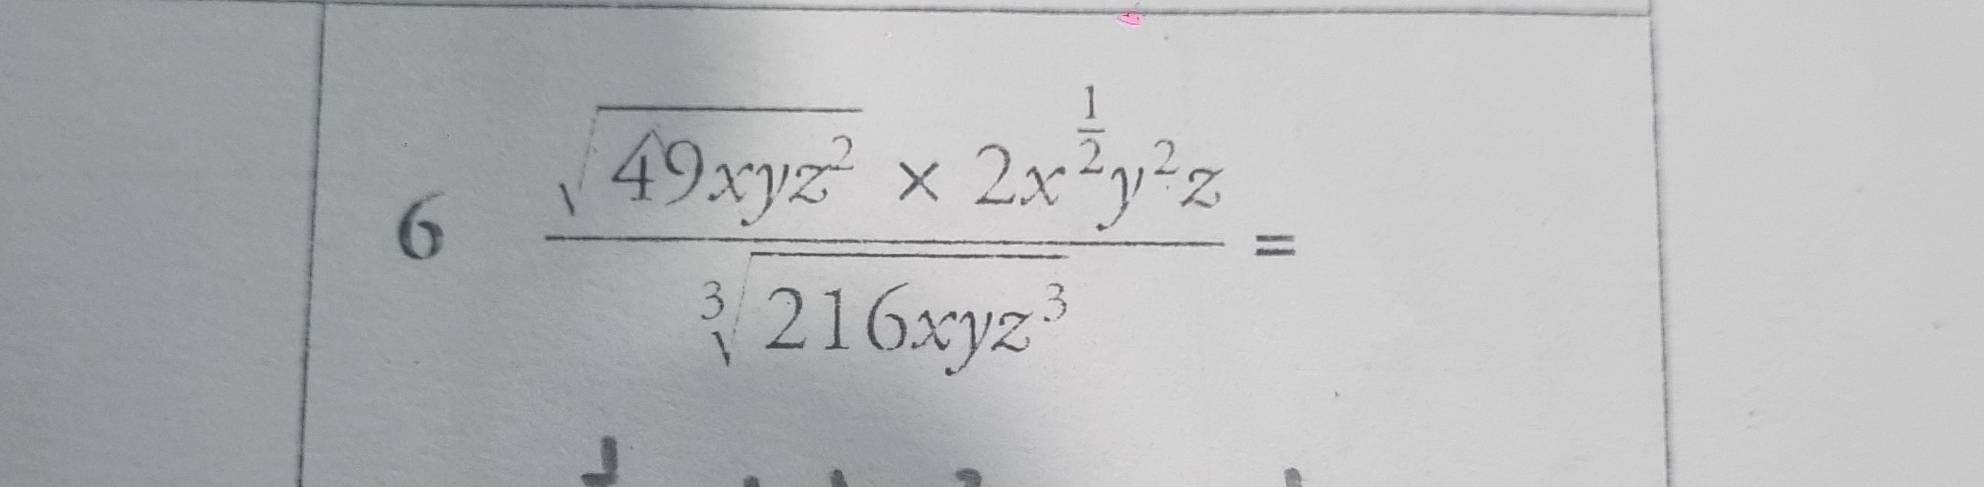 6 \frac{\sqrt{49xyz^2} \times 2x^{\frac{1}{2}}y^2z}{\sqrt[3]{216xyz^3}} =